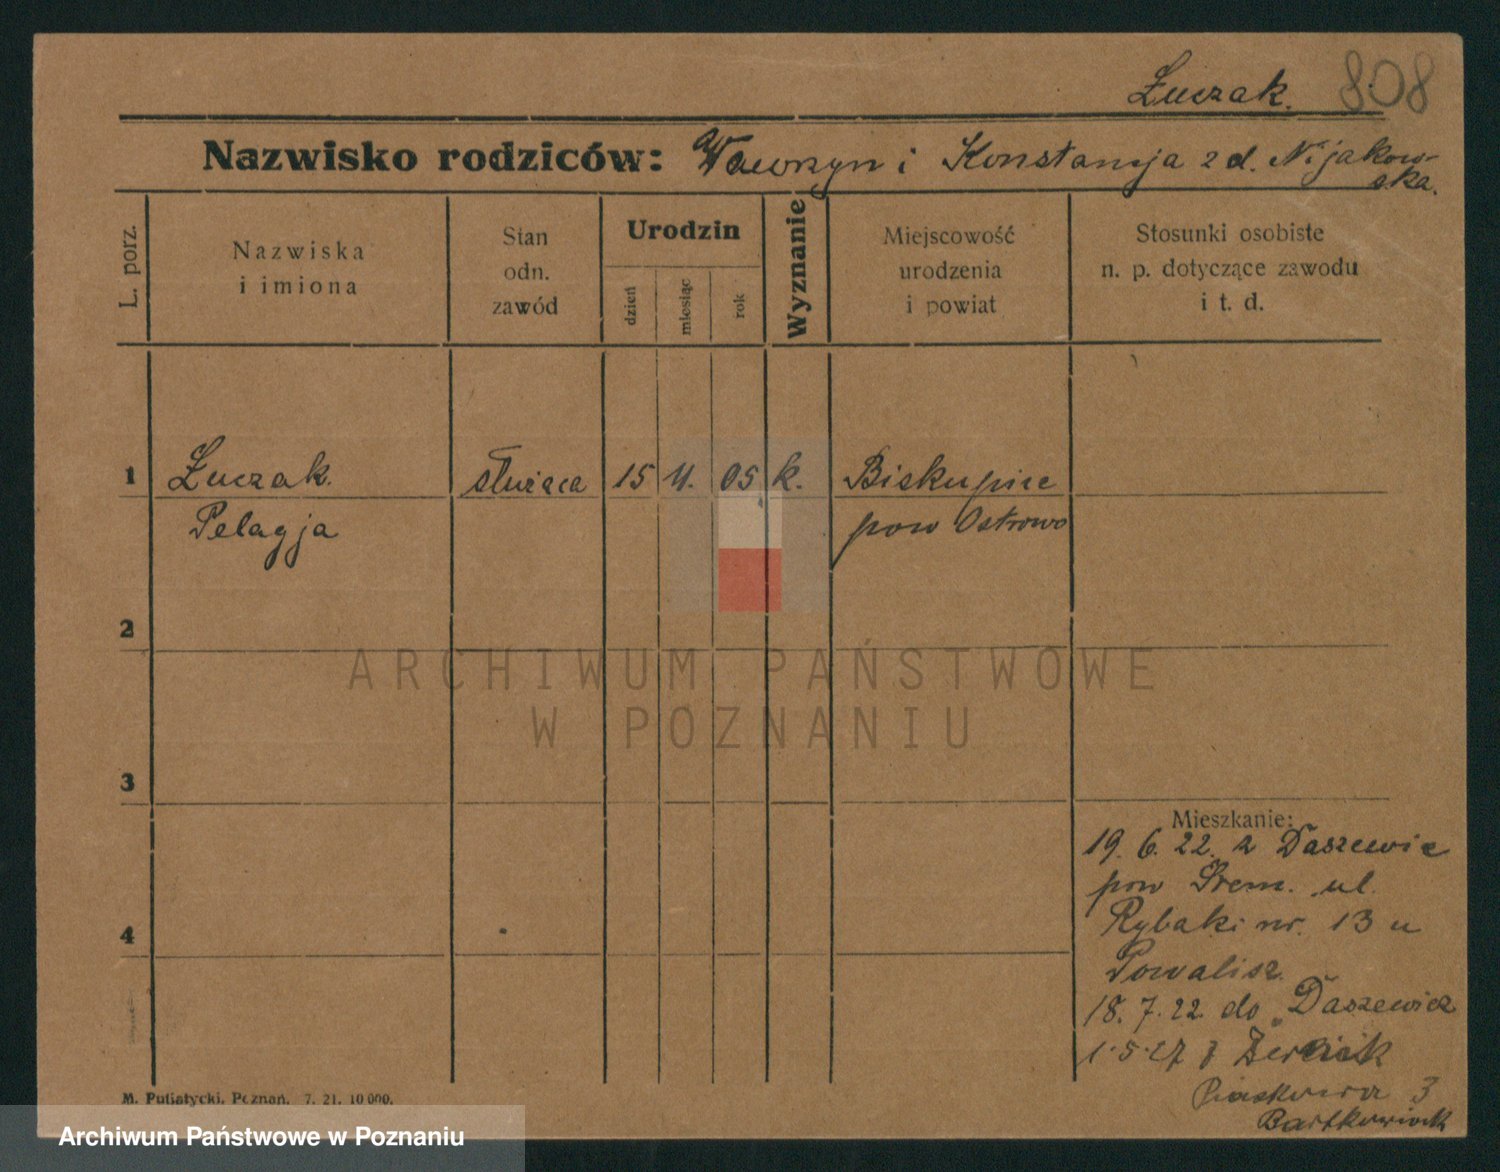 Łuczak. 808
Nazwisko rodziców: Wawrzyn i Konstancja z d. Nijakow-
ska.
L. porz.
Nazwiska
i imiona
Stan
odn.
zawód
Urodzin
dzień
miesiąc
rok
Wyznanie
Miejscowość
urodzenia
i powiat
Stosunki osobiste
n. p. dotyczące zawodu
i t. d.
1 Łuczak. służąca 15 4. 05 k. Biskupice
Pelagja pow Ostrowo
2
ARCHIWUM PAŃSTWOWE
W POZNANIU
3
Mieszkanie:
19. 6. 22. z Daszewic
pow Śrem. ul.
4
Rybaki nr. 13 u
Powalisz.
18. 7. 22. do Daszewicz
1.5.27 z
Piaskowa 3
Bartkowiak
M. Putiatycki, Poznań. 7. 21. 10 000.
Archiwum Państwowe w Poznaniu